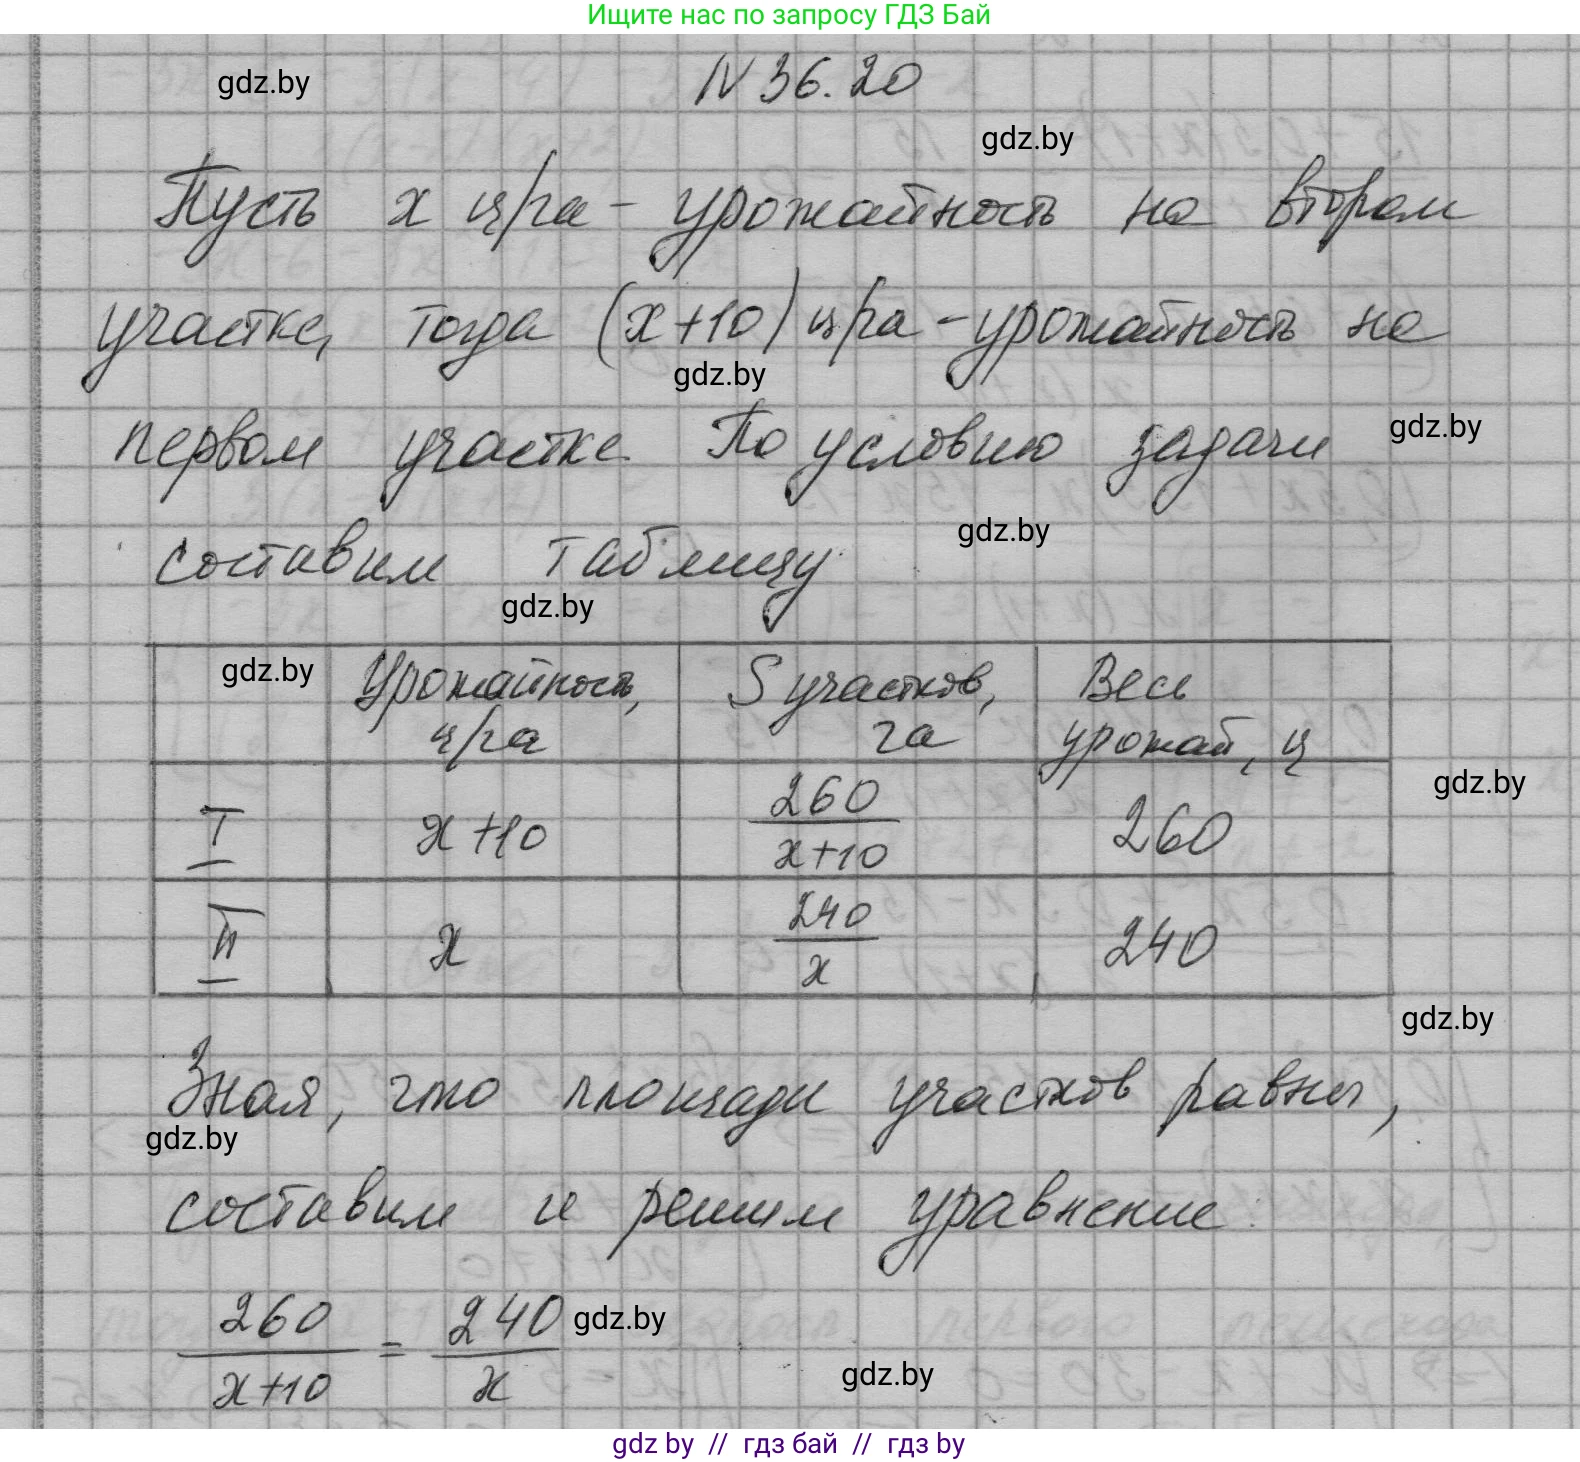 Ищите нас по запросу ГДЗ Бай
gdz.by
N 36.20
gdz.by
Пусть x ц/га - урожайность на втором
участке, тогда (x+10) ц/га - урожайность на
gdz.by
первом участке. По условию задачи
gdz.by
gdz.by
составим таблицу
gdz.by
gdz.by
Урожайность, ц/га
S участков, га
Весь урожай, ц
gdz.by
I x+10 260/(x+10) 260
II x 240/x 240
gdz.by
Зная, что площади участков равны,
gdz.by
составим и решим уравнение:
260/(x+10) = 240/x
gdz.by
gdz.by
gdz by // гдз бай // гдз by